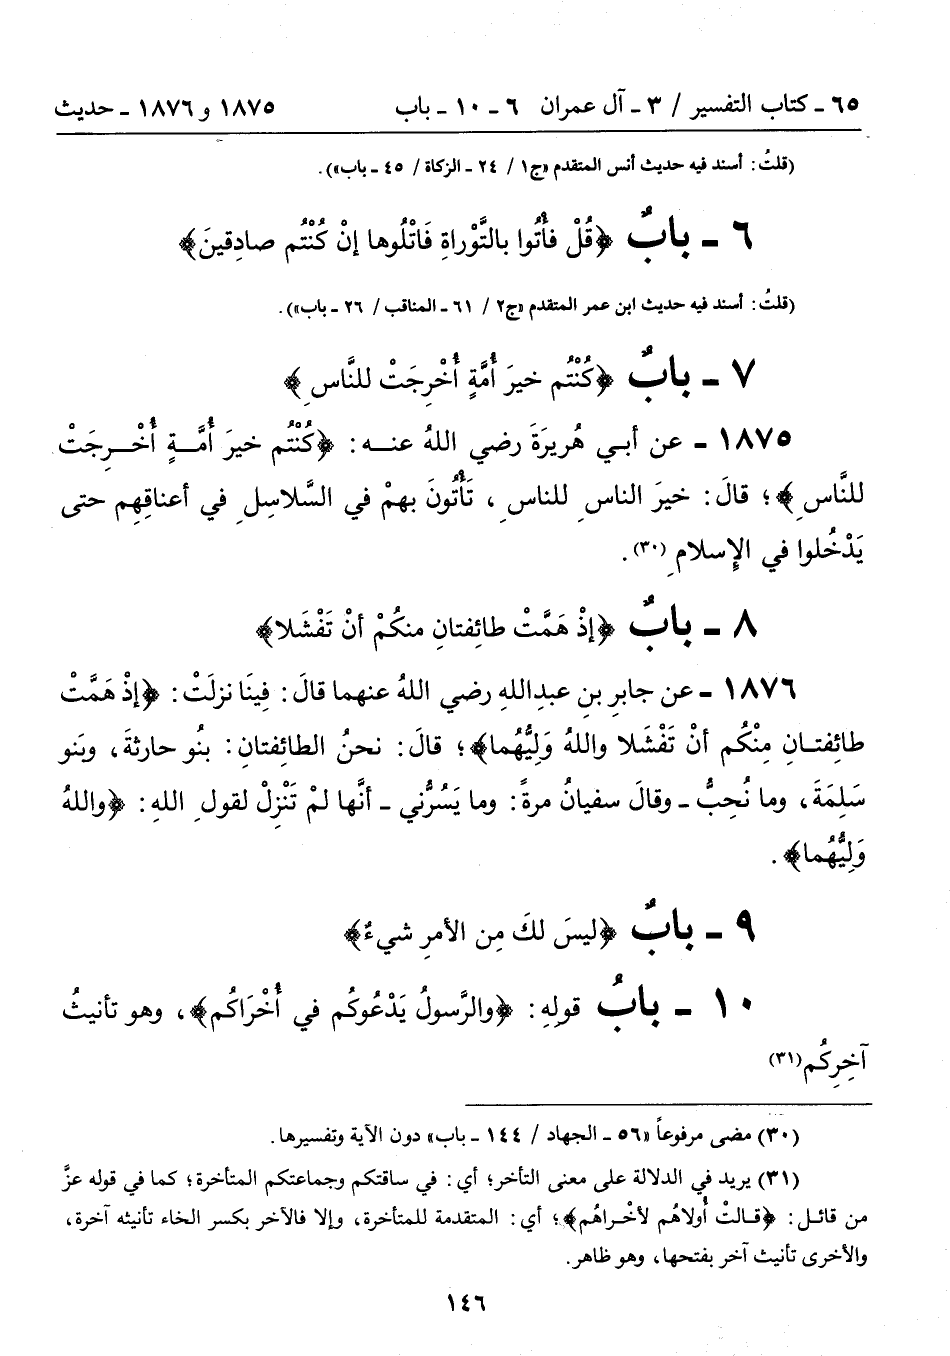 ٦٥ ـ كتاب التفسير / ٣ ـ آل عمران ٦ ـ ١٠ ـ باب ١٨٧٥ و ١٨٧٦ ـ حديث
(قلتُ: أسند فيه حديث أنس المتقدم «ج١ / ٢٤ ـ الزكاة / ٤٥ ـ باب»).
٦ ـ بابٌ ﴿قُلْ فأْتُوا بالتَّوْراةِ فَاتْلُوها إنْ كُنْتُم صادِقينَ﴾
(قلتُ: أسند فيه حديث ابن عمر المتقدم «ج٢ / ٦١ ـ المناقب / ٢٦ ـ باب»).
٧ ـ بابٌ ﴿كُنْتُم خيرَ أُمَّةٍ أُخْرِجَتْ للنَّاسِ﴾
١٨٧٥ ـ عن أبي هُريرَةَ رضي اللهُ عنه: ﴿كُنْتُم خيرَ أُمَّةٍ أُخْرِجَتْ
للنَّاسِ﴾؛ قالَ: خيرَ الناسِ للناسِ، تَأْتُونَ بهمْ في السَّلاسِلِ في أعناقِهِم حتى
يَدْخُلوا في الإسلامِ (٣٠).
٨ ـ بابٌ ﴿إذْ هَمَّتْ طائِفتانِ منكُمْ أنْ تَفْشَلا﴾
١٨٧٦ ـ عن جابرِ بنِ عبدِاللهِ رضي اللهُ عنهما قالَ: فِينَا نزلَتْ: ﴿إذْ هَمَّتْ
طائِفتانِ مِنْكُم أنْ تَفْشَلا واللهُ وَلِيُّهُما﴾؛ قالَ: نحنُ الطائفتانِ: بنُو حارثةَ، وبَنو
سَلِمَةَ، وما نُحِبُّ ـ وقالَ سفيانُ مرةً: وما يَسُرُّني ـ أنَّها لمْ تَنْزِلْ لقولِ اللهِ: ﴿واللهُ
وَلِيُّهُما﴾.
٩ ـ بابٌ ﴿ليسَ لكَ مِن الأمرِ شيءٌ﴾
١٠ ـ بابُ قولِهِ: ﴿والرَّسولُ يَدْعُوكُم في أُخْرَاكُم﴾، وهو تأنيثُ
آخِرِكُم(٣١)
(٣٠) مضى مرفوعاً «٥٦ ـ الجهاد / ١٤٤ ـ باب» دون الآية وتفسيرها.
(٣١) يريد في الدلالة على معنى التأخر؛ أي: في ساقتكم وجماعتكم المتأخرة؛ كما في قوله عزَّ
من قائل: ﴿قالتْ أُولاهُم لأخْراهُم﴾؛ أي: المتقدمة للمتأخرة، وإلا فالآخر بكسر الخاء تأنيثه آخرة،
والأخرى تأنيث آخر بفتحها، وهو ظاهر.
١٤٦